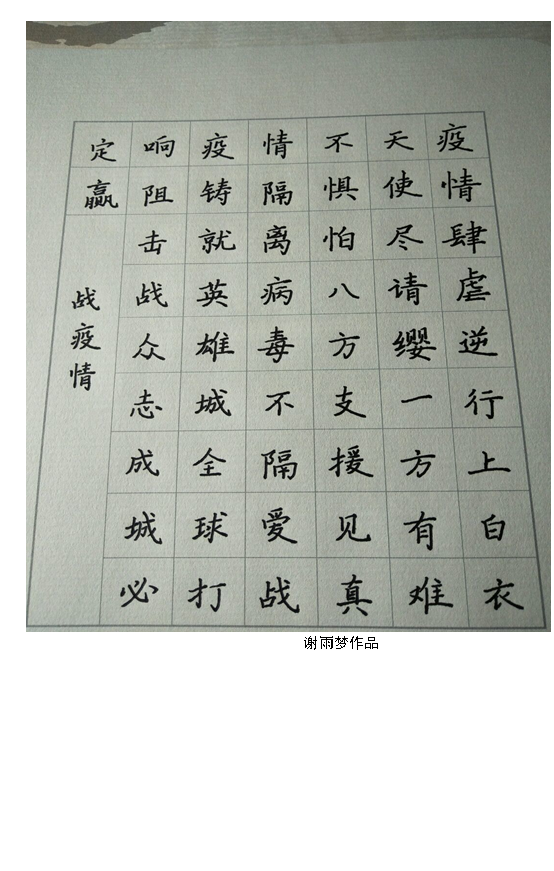 疫情肆虐逆行上白衣
天使尽请缨一方有难
不惧怕八方支援见真
情隔离病毒不隔爱战
疫铸就英雄城全球打
响阻击战众志成城必
定赢
战疫情
谢雨梦作品